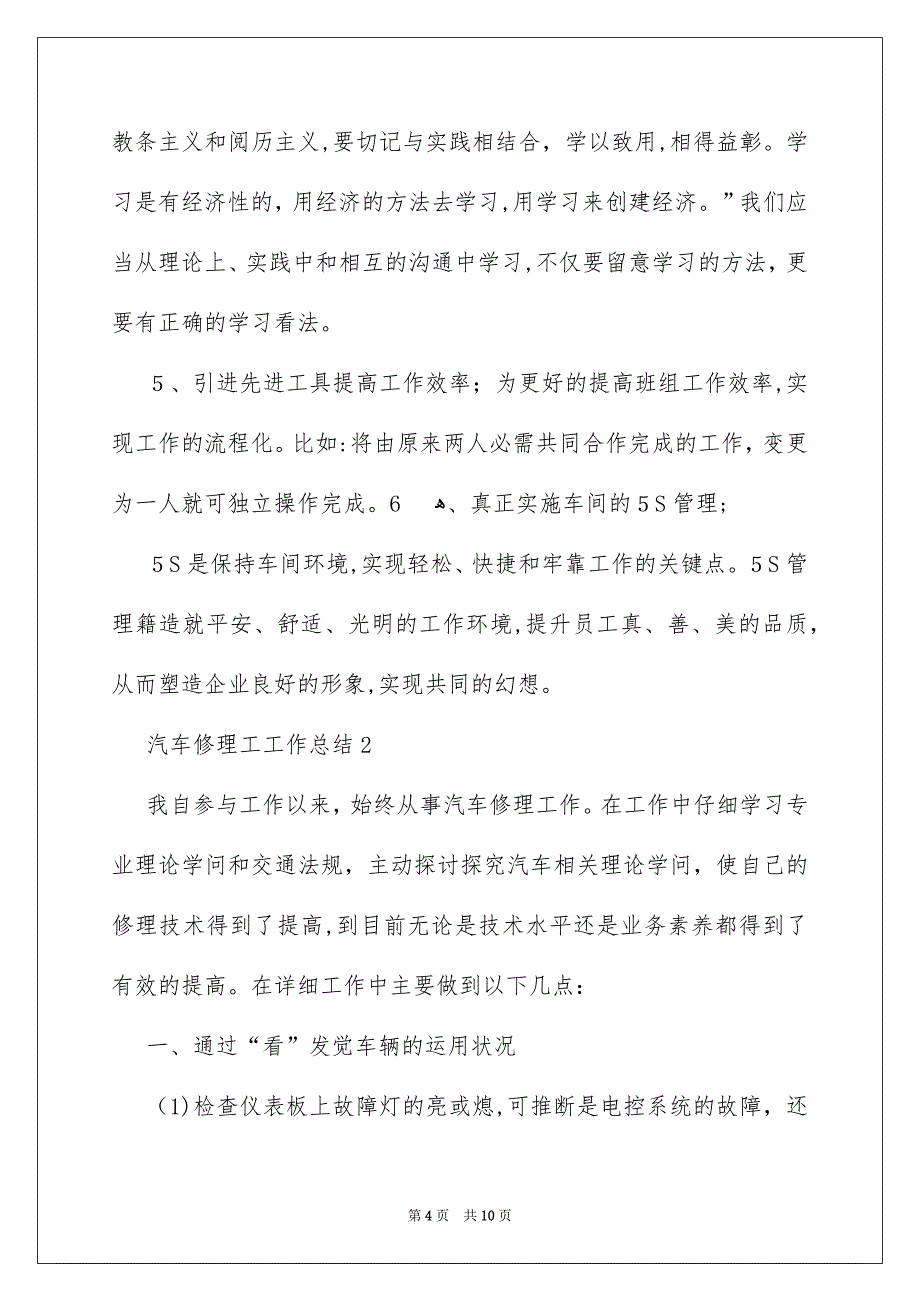 教条主义和阅历主义,要切记与实践相结合，学以致用,相得益彰。学
习是有经济性的，用经济的方法去学习,用学习来创建经济。”我们应
当从理论上、实践中和相互的沟通中学习,不仅要留意学习的方法，更
要有正确的学习看法。
5、引进先进工具提高工作效率；为更好的提高班组工作效率,实
现工作的流程化。比如:将由原来两人必需共同合作完成的工作，变更
为一人就可独立操作完成。6 ﻫ、真正实施车间的5S管理;
5S是保持车间环境,实现轻松、快捷和牢靠工作的关键点。5S管
理籍造就平安、舒适、光明的工作环境,提升员工真、善、美的品质，
从而塑造企业良好的形象,实现共同的幻想。
汽车修理工工作总结2
我自参与工作以来，始终从事汽车修理工作。在工作中仔细学习专
业理论学问和交通法规，主动探讨探究汽车相关理论学问，使自己的
修理技术得到了提高,到目前无论是技术水平还是业务素养都得到了
有效的提高。在详细工作中主要做到以下几点：
一、通过“看”发觉车辆的运用状况
（1)检查仪表板上故障灯的亮或熄,可推断是电控系统的故障，还
第4页 共10页